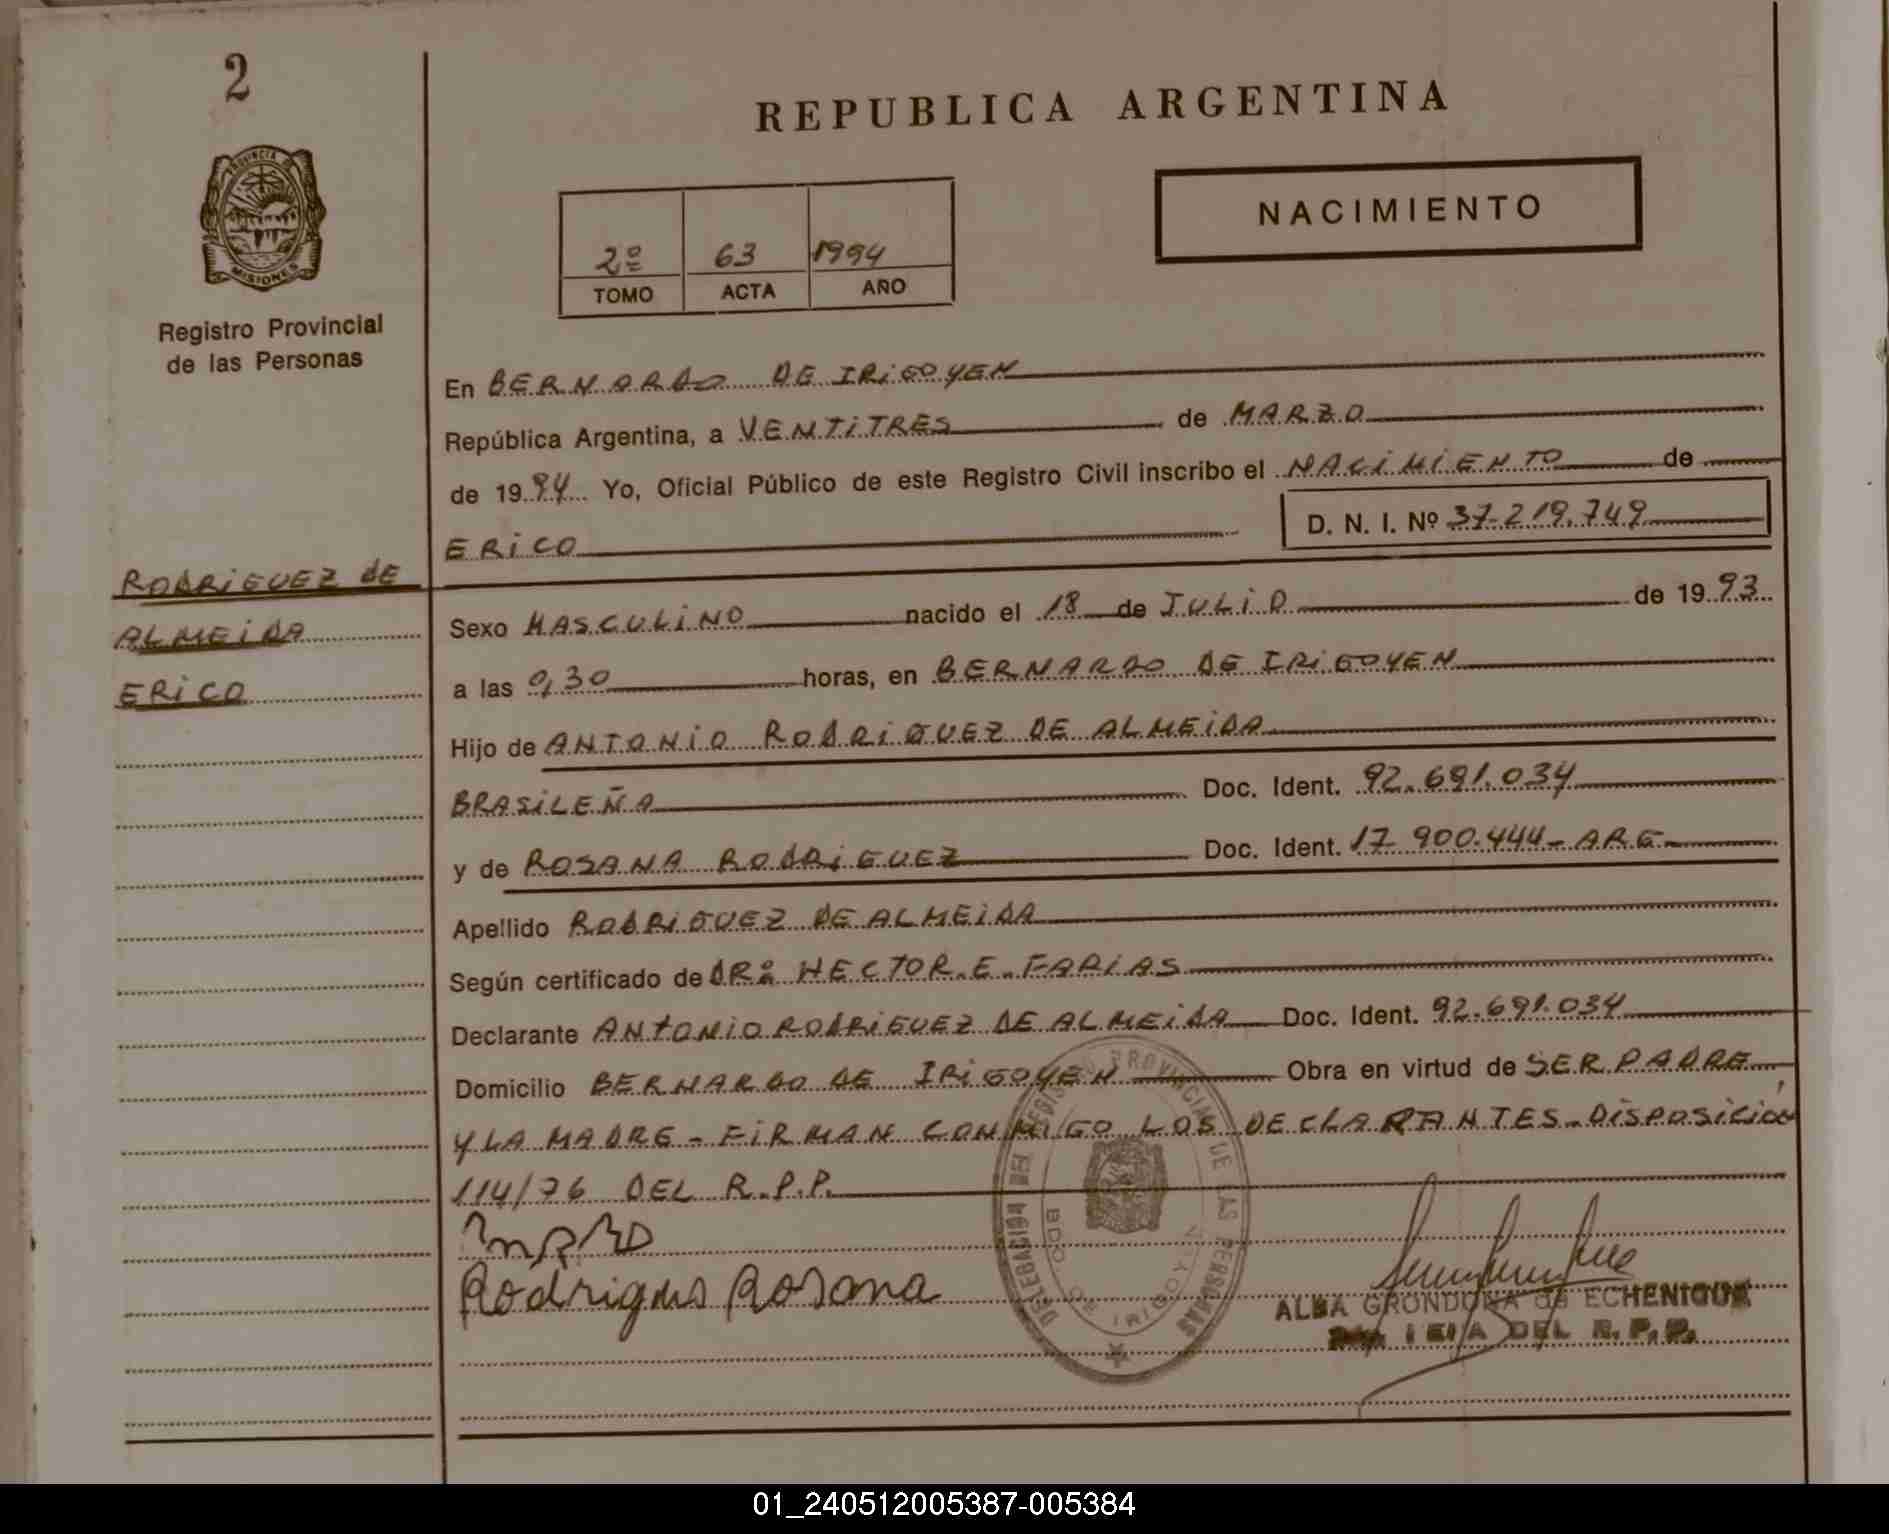 2
REPUBLICA ARGENTINA
NACIMIENTO
2º 63 1994
TOMO ACTA AÑO
PROVINCIA DE
MISIONES
Registro Provincial
de las Personas
En BERNARDO DE IRIGOYEN
República Argentina, a VENTITRES de MARZO
de 1994 Yo, Oficial Público de este Registro Civil inscribo el NACIMIENTO de
ERICO
D. N. I. Nº 37.219.749
RODRIGUEZ DE
ALMEIDA
ERICO
Sexo MASCULINO nacido el 18 de JULIO de 1993
a las 0,30 horas, en BERNARDO DE IRIGOYEN
Hijo de ANTONIO RODRIGUEZ DE ALMEIDA
BRASILEÑA Doc. Ident. 92.691.034
y de ROSANA RODRIGUEZ Doc. Ident. 17.900.444- ARG-
Apellido RODRIGUEZ DE ALMEIDA
Según certificado de DRº HECTOR.E.FARIAS
Declarante ANTONIO RODRIGUEZ DE ALMEIDA Doc. Ident. 92.691.034
Domicilio BERNARDO DE IRIGOYEN Obra en virtud de SER PADRE
Y LA MADRE - FIRMAN CONMIGO LOS DECLARANTES - DISPOSICIÓN
114/76 DEL R.P.P.
Rodrigues Rosana
REGISTRO PROVINCIAL DE LAS PERSONAS
BDO. DE IRIGOYEN
ALBA GRONDONA de ECHENIQUE
DEL R.P.P.
01_240512005387-005384